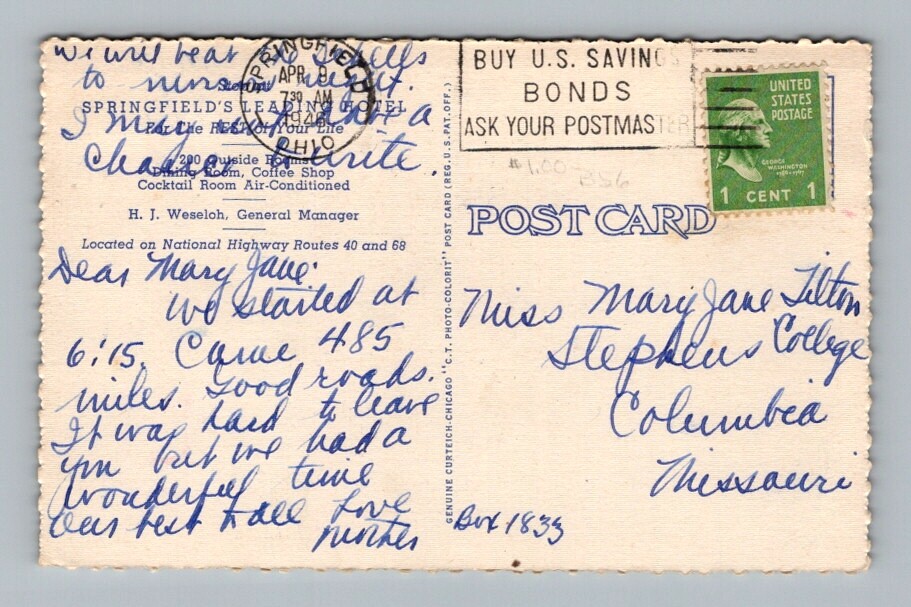 we will beat
to
I may not have a
chance to write.
SPRINGFIELD
APR 9
730 AM
1946
OHIO
BUY U.S. SAVINGS
BONDS
ASK YOUR POSTMASTER
UNITED
STATES
POSTAGE
GEORGE
WASHINGTON
1 CENT 1
$1.00
SPRINGFIELD'S LEADING HOTEL
For the REST of Your Life
200 Outside Rooms
Dining Room, Coffee Shop
Cocktail Room Air-Conditioned
H. J. Weseloh, General Manager
Located on National Highway Routes 40 and 68
Dear Mary Jane:
We started at
6:15. Came 485
miles. Good roads.
It was hard to leave
you but we had a
wonderful time
Our best to all Love
Mother
GENUINE CURTEICH-CHICAGO "C.T. PHOTO-COLORIT" POST CARD (REG. U.S. PAT. OFF.)
POST CARD
Miss Mary Jane Tilton
Stephens College
Columbia
Missouri
Box 1833